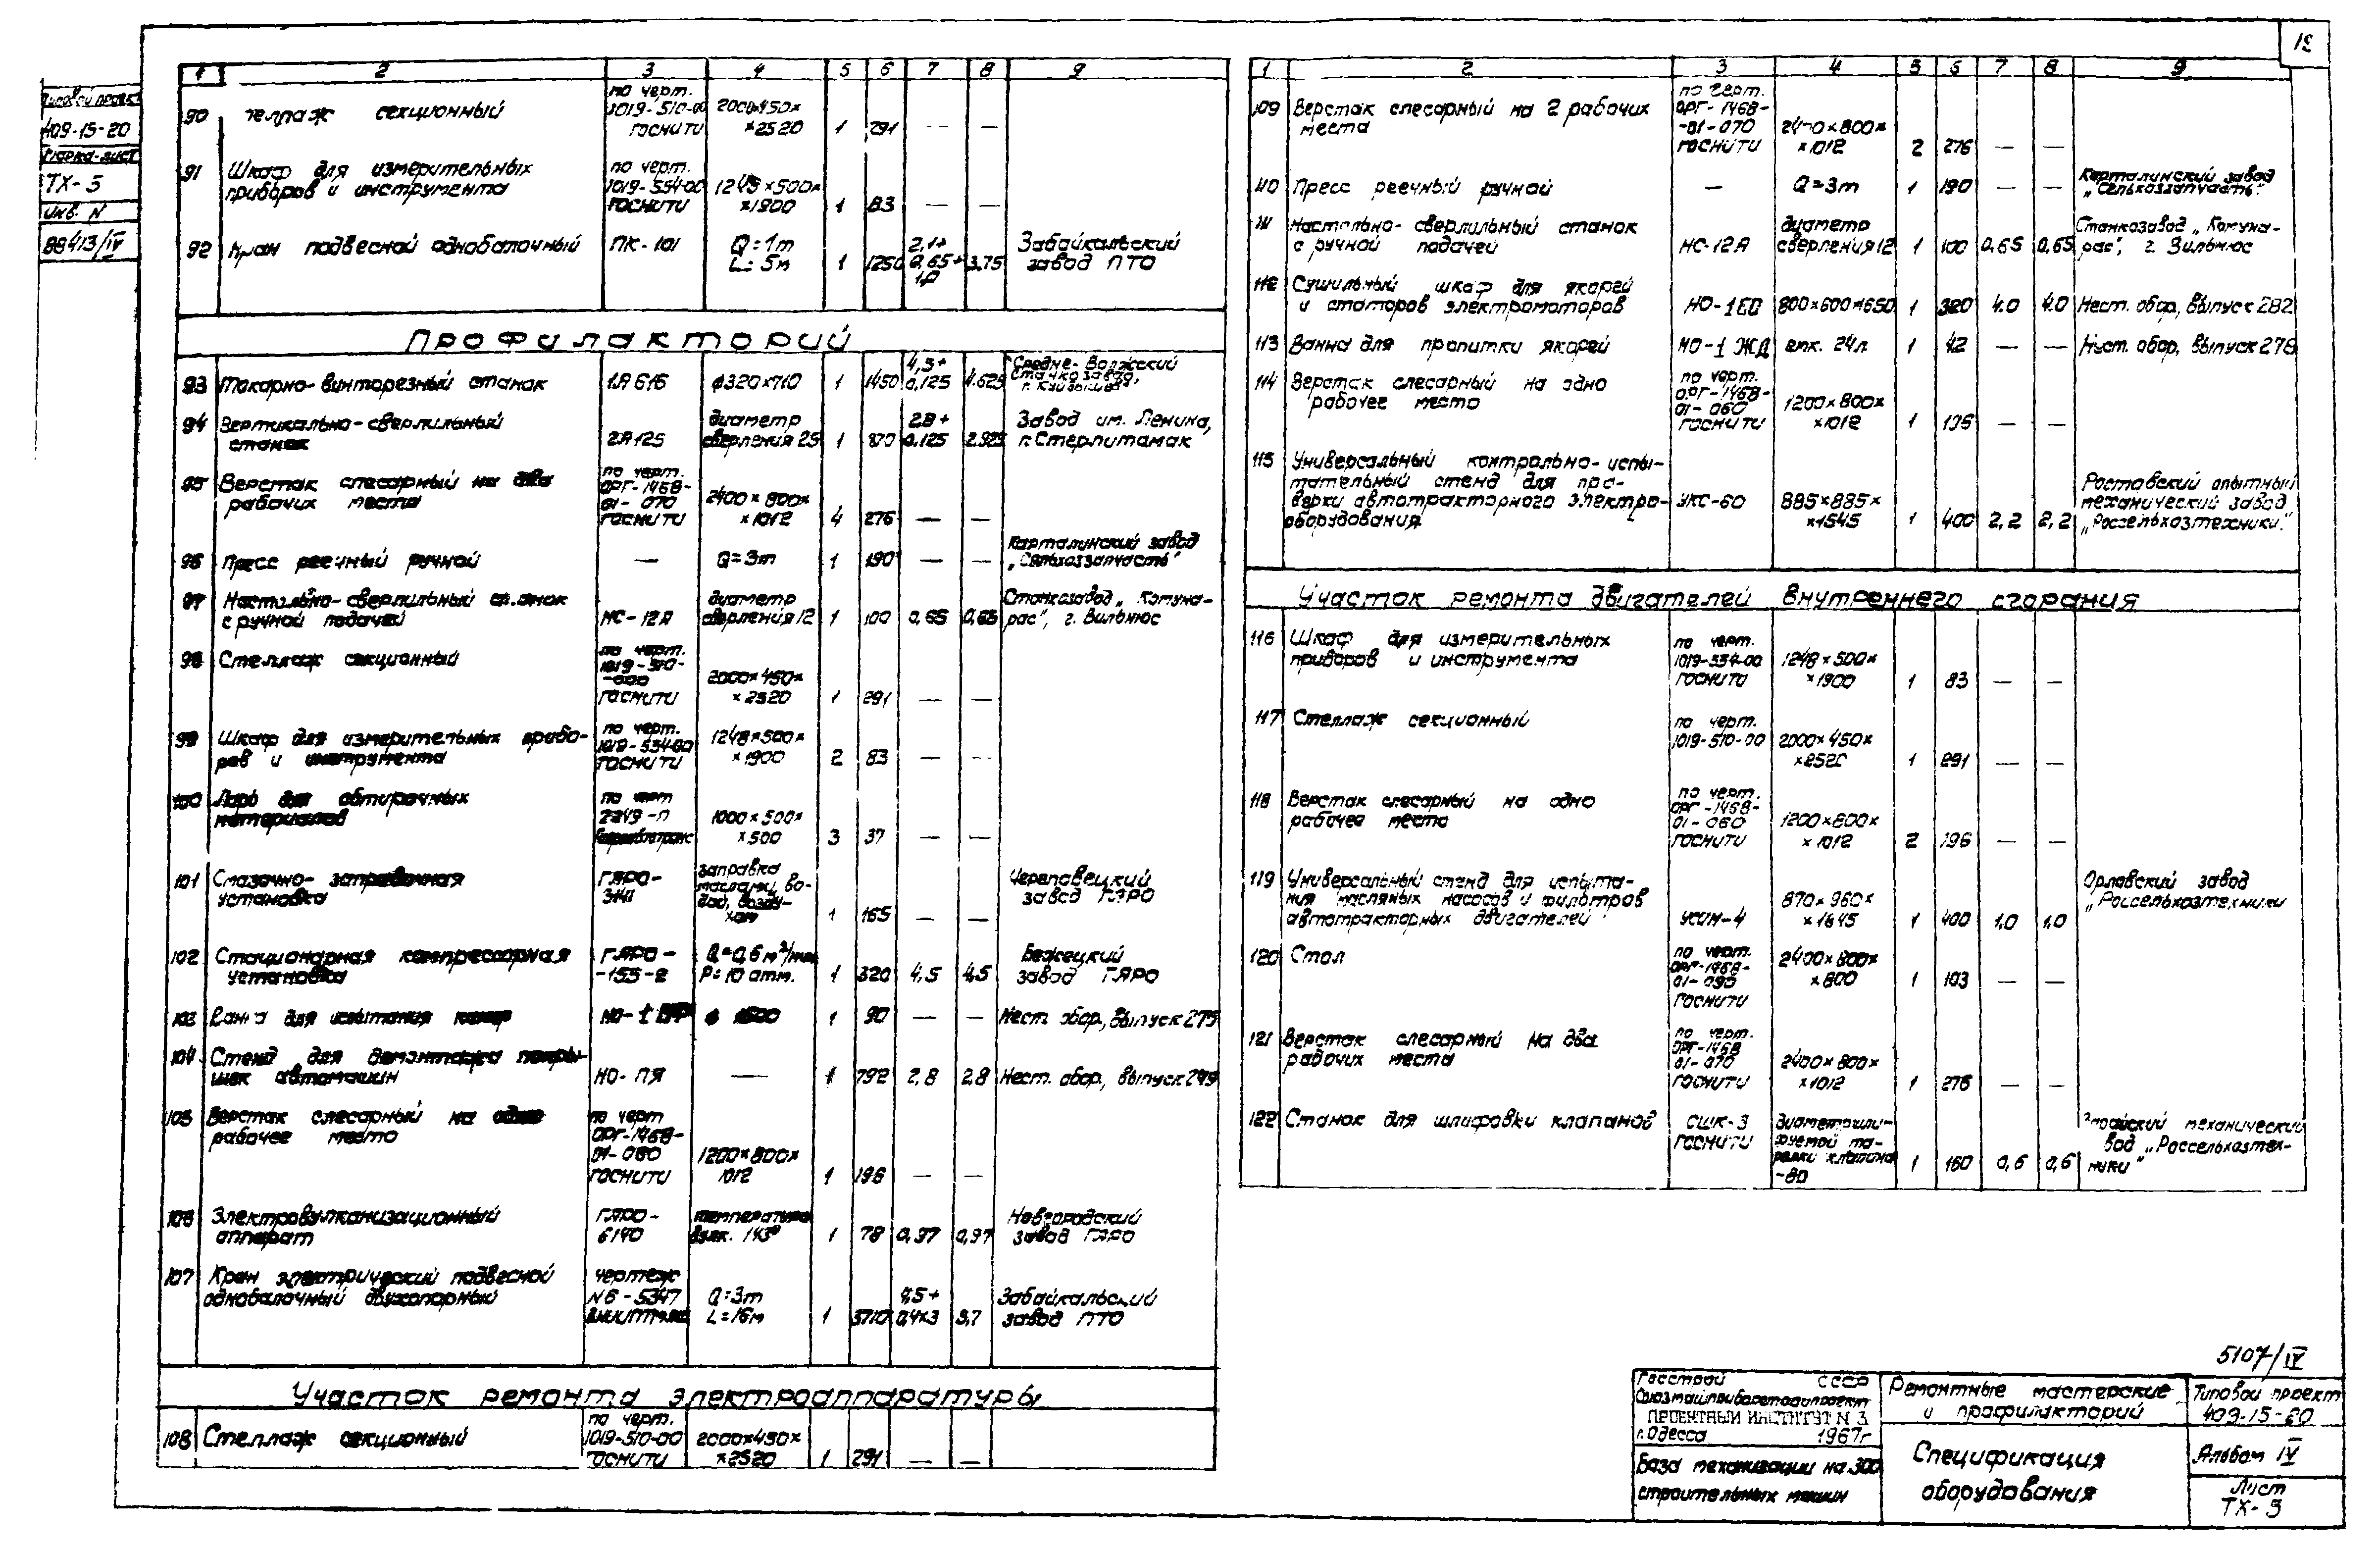 12
Типовой проект
409-15-20
Марка-лист
ТХ-5
Инв. N
88413/IV
1 2 3 4 5 6 7 8 9
90 Стеллаж секционный по черт. 1019-510-00 ГОСНИТИ 2000×450××2520 1 291 — —
91 Шкаф для измерительных приборов и инструмента по черт. 1019-554-00 ГОСНИТИ 1248×500××1900 1 83 — —
92 Кран подвесной однобалочный ПК-101 Q=1т L=5м 1 1250 3.75 Забайкальский завод ПТО
Профилакторий
93 Токарно-винторезный станок 1А616 ф320×710 1 1450 4,5+0,125 4.625 Средне-Волжский Станкозавод, г. Куйбышев
94 Вертикально-сверлильный станок 2А125 диаметр сверления 25 1 870 2.8+0,125 2.925 Завод им. Ленина, г. Стерлитамак
95 Верстак слесарный на два рабочих места по черт. ОРГ-1468-01-070 ГОСНИТИ 2400×800××1012 4 276 — —
96 Пресс реечный ручной — Q=3т 1 190 — — Карталинский завод „Сельхоззапчасть"
97 Настольно-сверлильный станок с ручной подачей НС-12А диаметр сверления 12 1 100 0,65 0,65 Станкозавод „Комунарас", г. Вильнюс
98 Стеллаж секционный по черт. 1019-510-000 ГОСНИТИ 2000×450××2520 1 291 — —
99 Шкаф для измерительных приборов и инструмента по черт. 1019-554-00 ГОСНИТИ 1248×500××1900 2 83 — —
100 Ларь для обтирочных материалов по черт 2249-П 1000×500××500 3 37 — —
101 Смазочно-заправочная установка ГАРО-3141 заправка маслами, водой, воздухом 1 165 — — Череповецкий завод ГАРО
102 Стационарная компрессорная установка ГАРО--155-2 Q=0,6м³/мин P=10 атм. 1 320 4,5 4,5 Бежецкий завод ГАРО
103 Ванна для испытания камер 1 90 — — Нест. обор., выпуск 275
104 Стенд для демонтажа покрышек автомашин НО-ПЯ — 1 792 2,8 2,8 Нест. обор., выпуск 249
105 Верстак слесарный на одно рабочее место по черт ОРГ-1468-01-060 ГОСНИТИ 1200×800×1012 1 196 — —
106 Электровулканизационный аппарат ГАРО-6140 температура вулк. 143° 1 78 0,97 0,97 Новгородский завод ГАРО
107 Кран электрический подвесной однобалочный двухопорный чертеж N6-5347 Q=3т L=16м 1 3710 4,5+0,4×3 5,7 Забайкальский завод ПТО
Участок ремонта электроаппаратуры
108 Стеллаж секционный по черт. 1019-510-00 ГОСНИТИ 2000×450××2520 1 291 — —
1 2 3 4 5 6 7 8 9
109 Верстак слесарный на 2 рабочих места по черт. ОРГ-1468--01-070 ГОСНИТИ 2400×800××1012 2 276 — —
110 Пресс реечный ручной — Q=3т 1 190 — — Карталинский завод „Сельхоззапчасть".
111 Настольно-сверлильный станок с ручной подачей НС-12А диаметр сверления 12 1 100 0,65 0,65 Станкозавод „Комунарас", г. Вильнюс
112 Сушильный шкаф для якорей и статоров электромоторов 800×600×1650 1 320 4.0 4.0 Нест. обор, выпуск 282
113 Ванна для пропитки якорей НО-1 ЖД емк. 24л 1 42 — — Нест. обор, выпуск 278
114 Верстак слесарный на одно рабочее место по черт. ОРГ-1468-01-060 ГОСНИТИ 1200×800××1012 1 196 — —
115 Универсальный контрольно-испытательный стенд для проверки автотракторного электрооборудования УКС-60 885×885××1545 1 400 2,2 2,2 Ростовский опытный механический завод „Россельхозтехники."
Участок ремонта двигателей внутреннего сгорания
116 Шкаф для измерительных приборов и инструмента по черт. 1019-554-00 ГОСНИТИ 1248×500××1900 1 83 — —
117 Стеллаж секционный по черт. 1019-510-00 2000×450××2520 1 291 — —
118 Верстак слесарный на одно рабочее место по черт. ОРГ-1468-01-060 ГОСНИТИ 1200×800××1012 2 196 — —
119 Универсальный стенд для испытания масляных насосов и фильтров автотракторных двигателей УСИН-4 870×960××1645 1 400 1,0 1,0 Орловский завод „Россельхозтехники
120 Стол по черт. ОРГ-1468-01-090 ГОСНИТИ 2400×800××800 1 103 — —
121 Верстак слесарный на два рабочих места по черт. ОРГ-1468 01-070 ГОСНИТИ 2400×800××1012 1 276 — —
122 Станок для шлифовки клапанов СШК-3 ГОСНИТИ Диаметр шлифуемой тарелки клапана -80 1 160 0,6 0,6 механический завод „Россельхозтехники"
5107/IV
Госстрой СССР
Союзмашприборстройпроект
ПРОЕКТНЫЙ ИНСТИТУТ N 3
г. Одесса 1967г
База механизации на 300
строительных машин
Ремонтные мастерские
и профилакторий
Спецификация
оборудования
Типовой проект
409-15-20
Альбом IV
Лист
ТХ-5